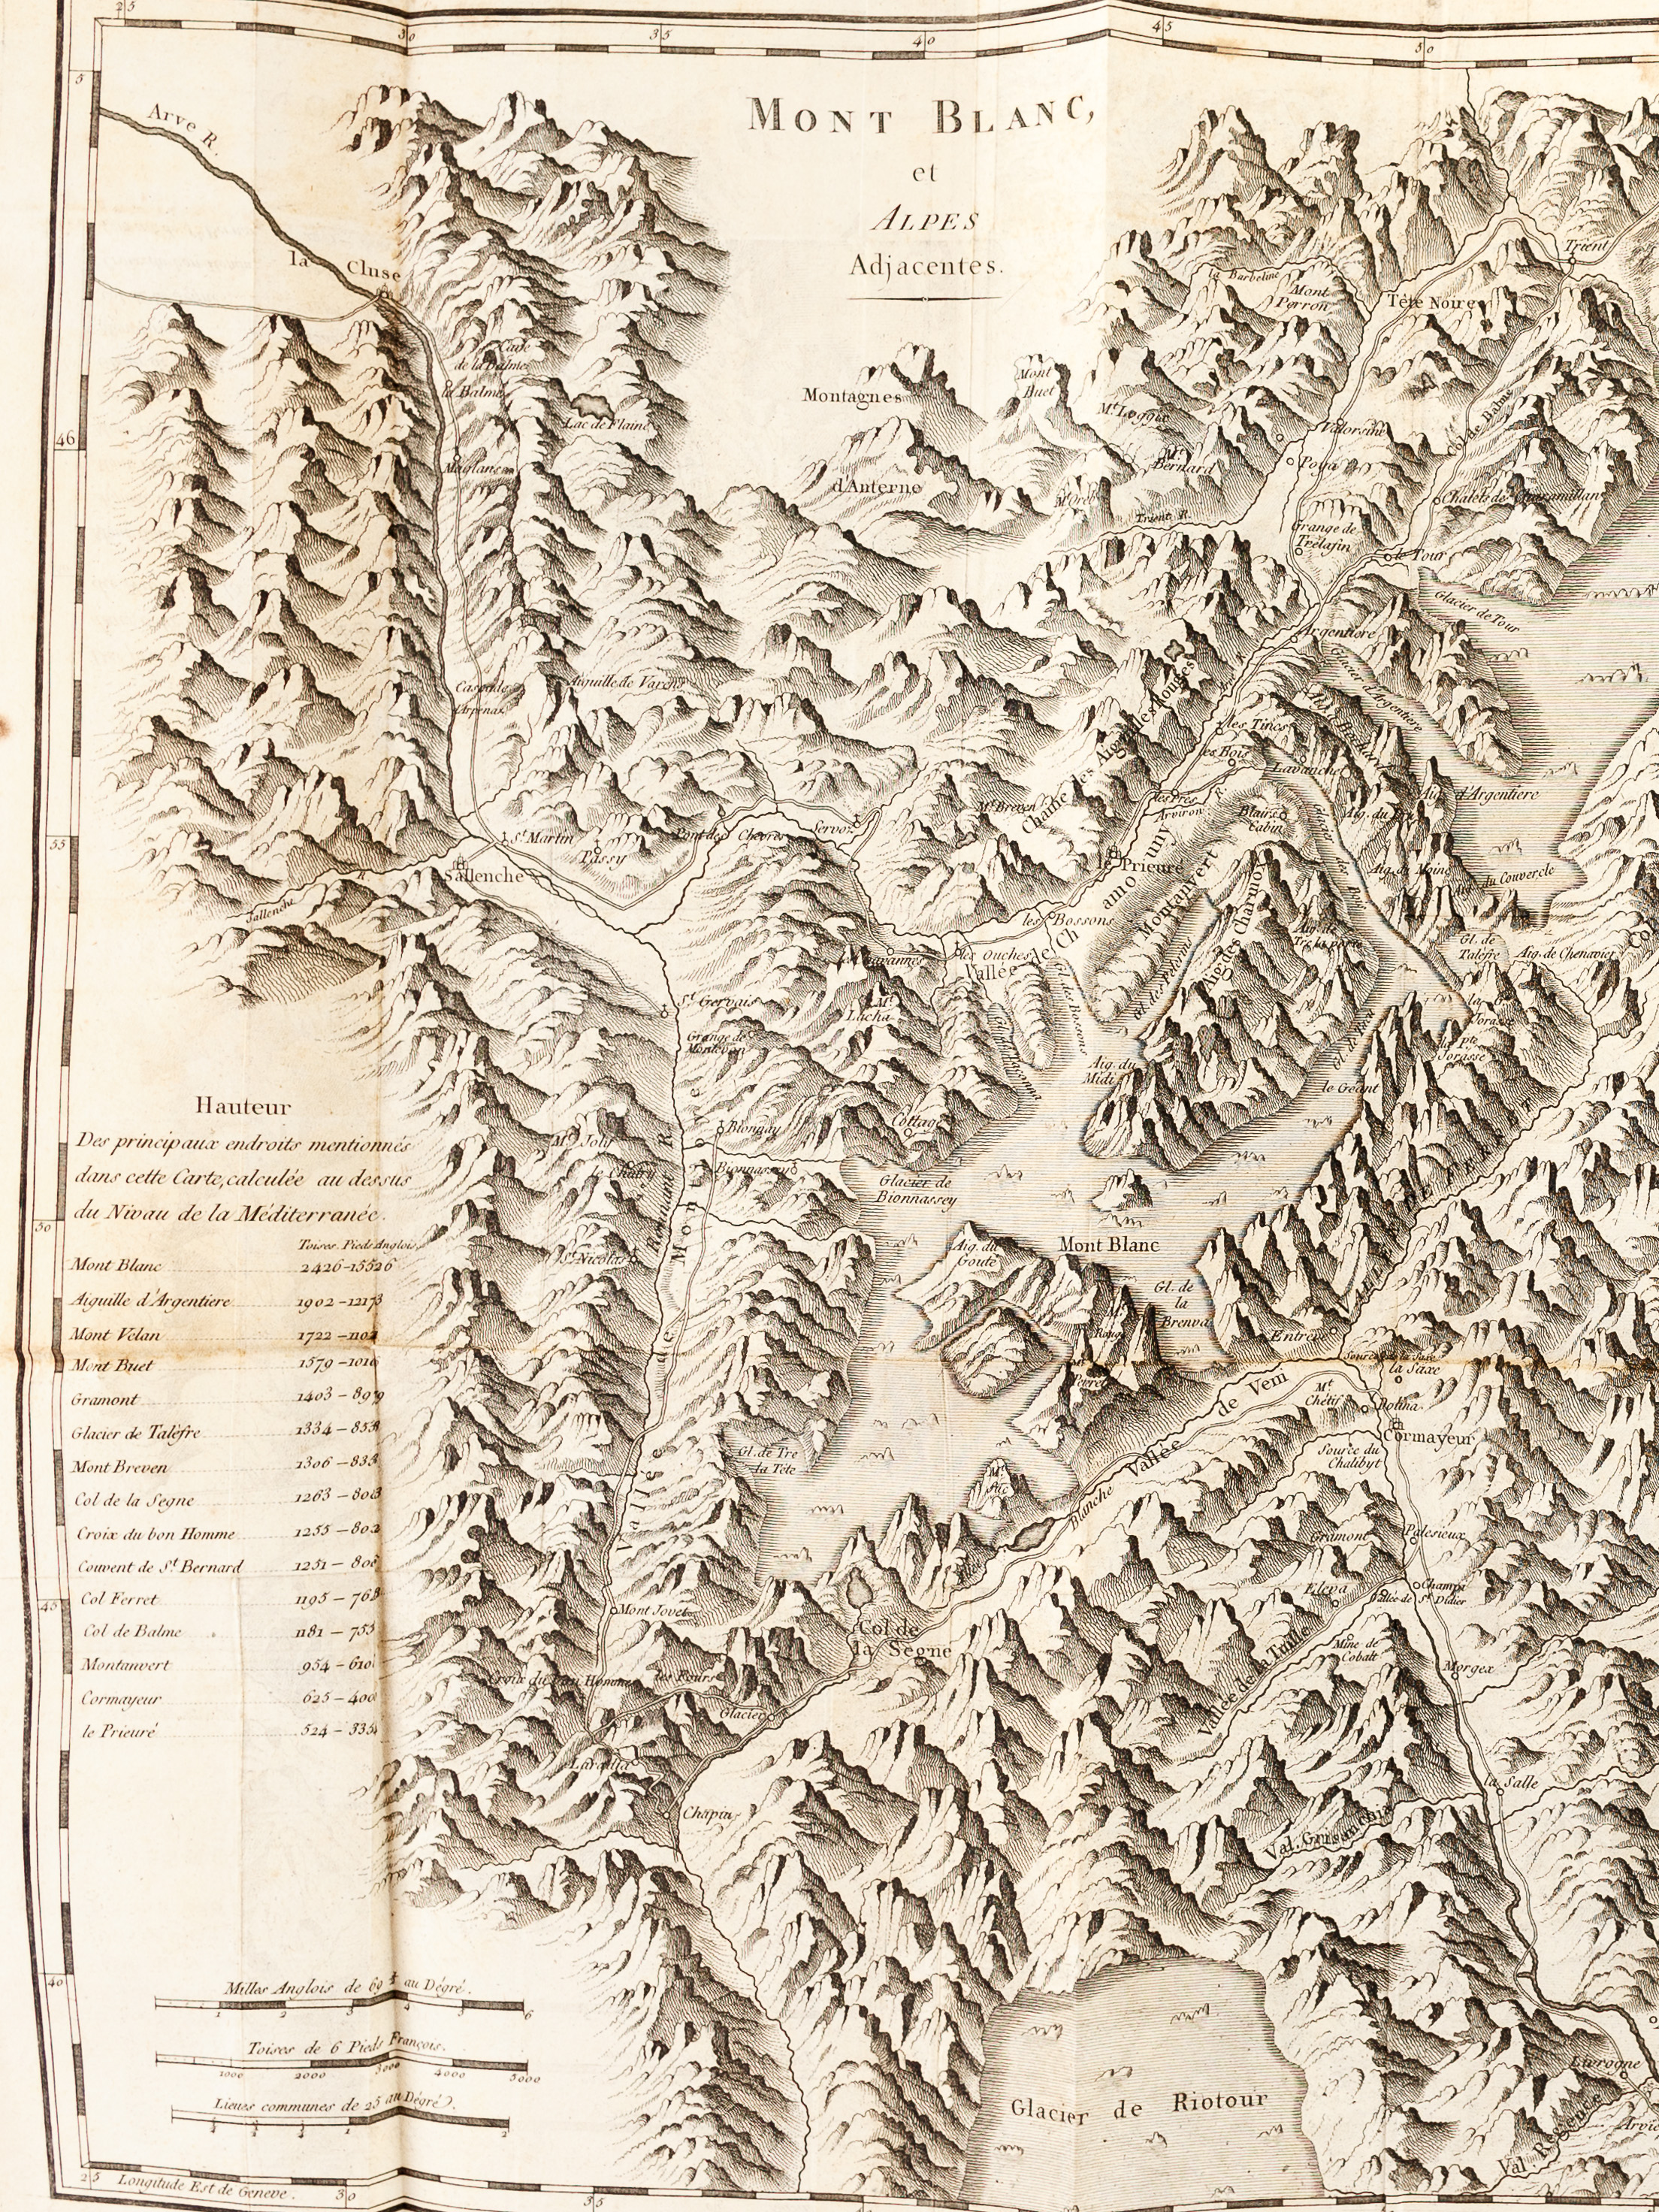 25
30
35
40
45
50
5
Arve R.
MONT BLANC,
et
ALPES
Adjacentes.
la Cluse
Trient
la Barbeline
Mont
Perron
Tête Noire
de la Balme
la Balme
Lac de Flaine
Maglans
Montagnes
d'Anterne
Mont
Buet
Mt. Loggia
Mt.
Bernard
Valorsine
Poya
Col de Balme
46
Chalets de Charamillan
Trient R.
Grange de
Trélafin
le Tour
Glacier de Tour
Argentiere
Glacier d'Argentiere
Aiguille de Varens
Cascade
d'Arpenas
Chaine des Aiguilles Rouges
les Tines
les Bois
Lavanche
Aig. d'Argentiere
Aig. du Dru
Mt. Breven
les Prés
Arviron R.
Blairs
Cabin
55
St. Martin
Passy
Pont des Chevres
Servoz
Sallenche
Sallenche R.
le Prieuré
Montanvert
Aig. du Moine
Aig. du Couvercle
Glacier des Bois
Aig. des Charmoz
les Bossons
Vallée de Chamouny
les Ouches
les Chavannes
Gl. de
Taléfre
Aig. de Chenavier
Gl. des Bossons
St. Gervais
Mt.
Lacha
Grange de
la
Jorasse
la pte.
Jorasse
Aig. du
Midi
le Géant
Hauteur
Des principaux endroits mentionnés
dans cette Carte, calculée au dessus
du Nivau de la Méditerranée.
Toises. Pieds Anglois.
Mont Blanc 2426-15526
Aiguille d'Argentiere 1902-12173
Mont Velan 1722-1102
Mont Buet 1579-1016
Gramont 1403-8979
Glacier de Taléfre 1334-853
Mont Breven 1306-835
Col de la Segne 1263-808
Croix du bon Homme 1255-802
Couvent de St. Bernard 1251-800
Col Ferret 1195-763
Col de Balme 1181-755
Montanvert 954-610
Cormayeur 625-400
le Prieuré 524-335
Mt. Joly
Bionnay
Bionnassey
Cottage
Glacier de
Bionnassey
VALLÉE DE FERRET
50
St. Nicolas
Vallée de Mont
Aig. du
Gouté
Mont Blanc
Gl. de
la
Brenva
Entreve
la Saxe
Vallée de Veni
Mt.
Chétif
Dolina
Cormayeur
Source du
Chalibyt
Gl. de Tre
la Tête
Mt.
Suc
Blanche
Gramont
Palesieux
Eleva
Champé
Vallée de St. Didier
45
Mont Jovet
Col de
la Segne
Vallée de la Tuille
Mine de
Cobalt
Morgex
Croix du bon Homme
les Fours
Glacier
Chapin
la Salle
Val. Grisanche
40
Milles Anglois de 69½ au Dégré.
1 2 3 4 5 6
Toises de 6 Pieds François.
1000 2000 3000 4000 5000
Lieues communes de 25 au Dégré.
Glacier de Riotour
Livrogne
Val. Regence
25 Longitude Est de Geneve. 30
35